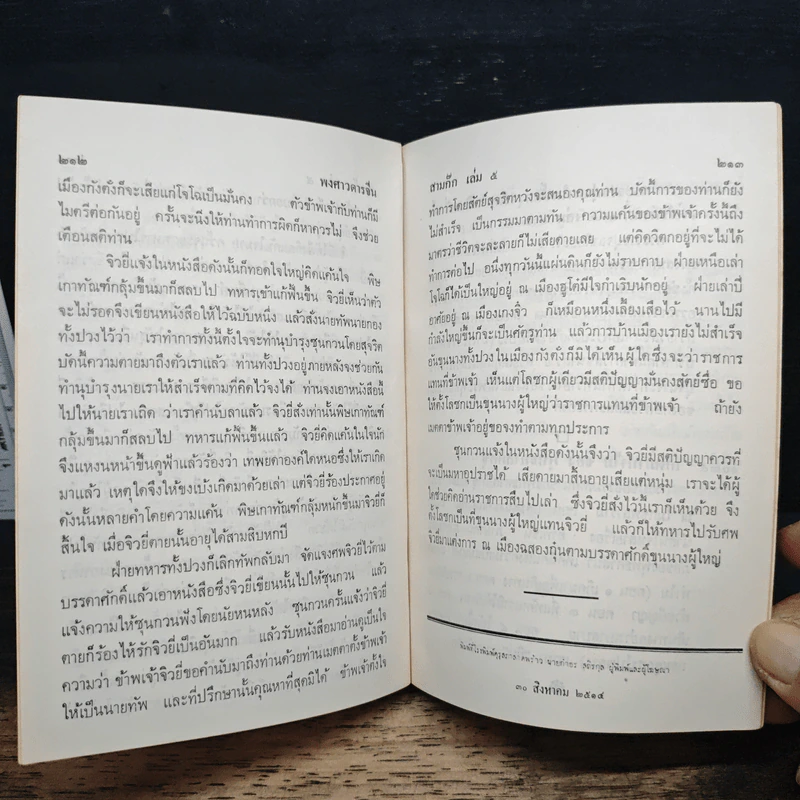 ๒๑๒
พงศาวดารจีน
เมืองกังตั๋งก็จะเสียแก่โจโฉเป็นมั่นคง ตัวข้าพเจ้ากับท่านก็มี
ไมตรีต่อกันอยู่ ครั้นจะนิ่งให้ท่านทำการผิดก็หาควรไม่ จึงช่วย
เตือนสติท่าน
จิวยี่แจ้งในหนังสือดังนั้นก็ทอดใจใหญ่คิดแค้นใจ พิษ
เกาทัณฑ์กลุ้มขึ้นมาก็สลบไป ทหารเข้าแก้ฟื้นขึ้น จิวยี่เห็นว่าตัว
จะไม่รอดจึงเขียนหนังสือให้ไว้ฉบับหนึ่ง แล้วสั่งนายทัพนายกอง
ทั้งปวงไว้ว่า เราทำการทั้งนี้ตั้งใจจะทำนุบำรุงซุนกวนโดยสุจริต
บัดนี้ความตายมาถึงตัวเราแล้ว ท่านทั้งปวงอยู่ภายหลังจงช่วยกัน
ทำนุบำรุงนายเราให้สำเร็จตามที่คิดไว้จงได้ ท่านจงเอาหนังสือนี้
ไปให้นายเราเถิด ว่าเราคำนับลาแล้ว จิวยี่สั่งเท่านั้นพิษเกาทัณฑ์
กลุ้มขึ้นมาก็สลบไป ทหารแก้ฟื้นขึ้นแล้ว จิวยี่คิดแค้นในใจนัก
จึงแหงนหน้าขึ้นดูฟ้าแล้วร้องว่า เทพยดาองค์ใดหนอซึ่งให้เราเกิด
มาแล้ว เหตุใดจึงให้ขงเบ้งเกิดมาด้วยเล่า แต่จิวยี่ร้องประกาศอยู่
ดังนั้นหลายคำโดยความแค้น พิษเกาทัณฑ์กลุ้มหนักขึ้นมาจิวยี่ก็
สิ้นใจ เมื่อจิวยี่ตายนั้นอายุได้สามสิบหกปี
ฝ่ายทหารทั้งปวงก็เลิกทัพกลับมา จัดแจงศพจิวยี่ไว้ตาม
บรรดาศักดิ์แล้วเอาหนังสือซึ่งจิวยี่เขียนนั้นไปให้ซุนกวน แล้ว
แจ้งความให้ซุนกวนฟังโดยนัยหนหลัง ซุนกวนครั้นแจ้งว่าจิวยี่
ตายก็ร้องไห้รักจิวยี่เป็นอันมาก แล้วรับหนังสือมาอ่านดูเป็นใจ
ความว่า ข้าพเจ้าจิวยี่ขอคำนับมาถึงท่านด้วยท่านเมตตาตั้งข้าพเจ้า
ให้เป็นนายทัพ และที่ปรึกษานั้นคุณหาที่สุดมิได้ ข้าพเจ้าตั้งใจ
สามก๊ก เล่ม ๕
๒๑๓
ทำการโดยสัตย์สุจริตหวังจะสนองคุณท่าน บัดนี้การของท่านก็ยัง
ไม่สำเร็จ เป็นกรรมมาตามทัน ความแค้นของข้าพเจ้าครั้งนี้ถึง
มาตรว่าชีวิตจะละลายก็ไม่เสียดายเลย แต่คิดวิตกอยู่ที่จะไม่ได้
ทำการต่อไป อนึ่งทุกวันนี้แผ่นดินก็ยังไม่ราบคาบ ฝ่ายเหนือเล่า
โจโฉก็ได้เป็นใหญ่อยู่ ณ เมืองฮูโต๋มีใจกำเริบนักอยู่ ฝ่ายเล่าปี่
อาศัยอยู่ ณ เมืองเกงจิ๋ว ก็เหมือนหนึ่งเลี้ยงเสือไว้ นานไปมี
กำลังใหญ่ขึ้นก็จะเป็นศัตรูท่าน แล้วการบ้านเมืองเรายังไม่สำเร็จ
อันขุนนางทั้งปวงในเมืองกังตั๋งก็มิได้เห็นผู้ใดซึ่งจะว่าราชการ
แทนที่ข้าพเจ้า เห็นแต่โลซกผู้เดียวมีสติปัญญามั่นคงสัตย์ซื่อ ขอ
ให้ตั้งโลซกเป็นขุนนางผู้ใหญ่ว่าราชการแทนที่ข้าพเจ้า ถ้ายัง
เมตตาข้าพเจ้าอยู่ขอจงทำตามทุกประการ
ซุนกวนแจ้งในหนังสือดังนั้นจึงว่า จิวยี่มีสติปัญญาควรที่
จะเป็นมหาอุปราชได้ เสียดายมาสิ้นอายุเสียแต่หนุ่ม เราจะได้ผู้
ใดช่วยคิดอ่านราชการสืบไปเล่า ซึ่งจิวยี่สั่งไว้นี้เราก็เห็นด้วย จึง
ตั้งโลซกเป็นที่ขุนนางผู้ใหญ่แทนจิวยี่ แล้วก็ให้ทหารไปรับศพ
จิวยี่มาแต่งการ ณ เมืองฉสองกุ๋นตามบรรดาศักดิ์ขุนนางผู้ใหญ่
พิมพ์ที่โรงพิมพ์คุรุสภา ลาดพร้าว นายกำธร สถิรกุล ผู้พิมพ์และผู้โฆษณา
๓๐ สิงหาคม ๒๕๑๔